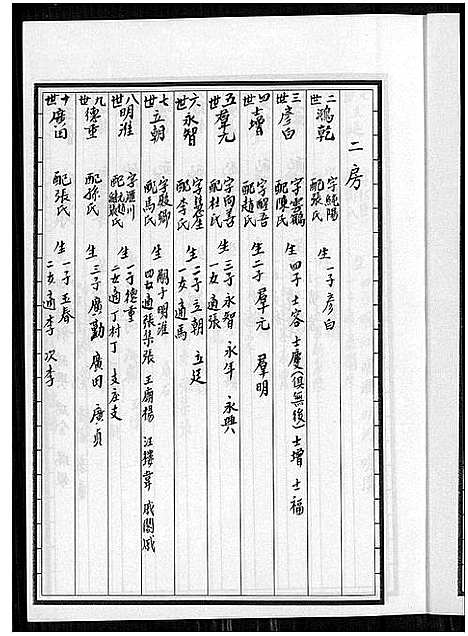 二房
二世 鴻乾 字純陽 配張氏 生 一子彦白
三世 彦白 字雲鶴 配陳氏 生 四子 士容 士慶(俱無後) 士增 士福
四世 士增 字醒吾 配趙氏 生 二子 羣元 羣明
五世 羣元 字向善 配杜氏 生 三子 永智 永年 永興 一女 適張
六世 永智 配李氏 生 二子 立朝 立廷 一女 適馬
七世 立朝 字殿卿 配馬氏 生 嗣子明淮 四女 適張柴張 王廟楊 汪樓韋 戚閣戚
八世 明淮 字滙川 生 一子德重 二女 適丁村丁 支庄支
九世 德重 配孫氏 生 三子 廣勤 廣田 廣貞
十世 廣田 配張氏 生 一子玉春 二女 適李 次李